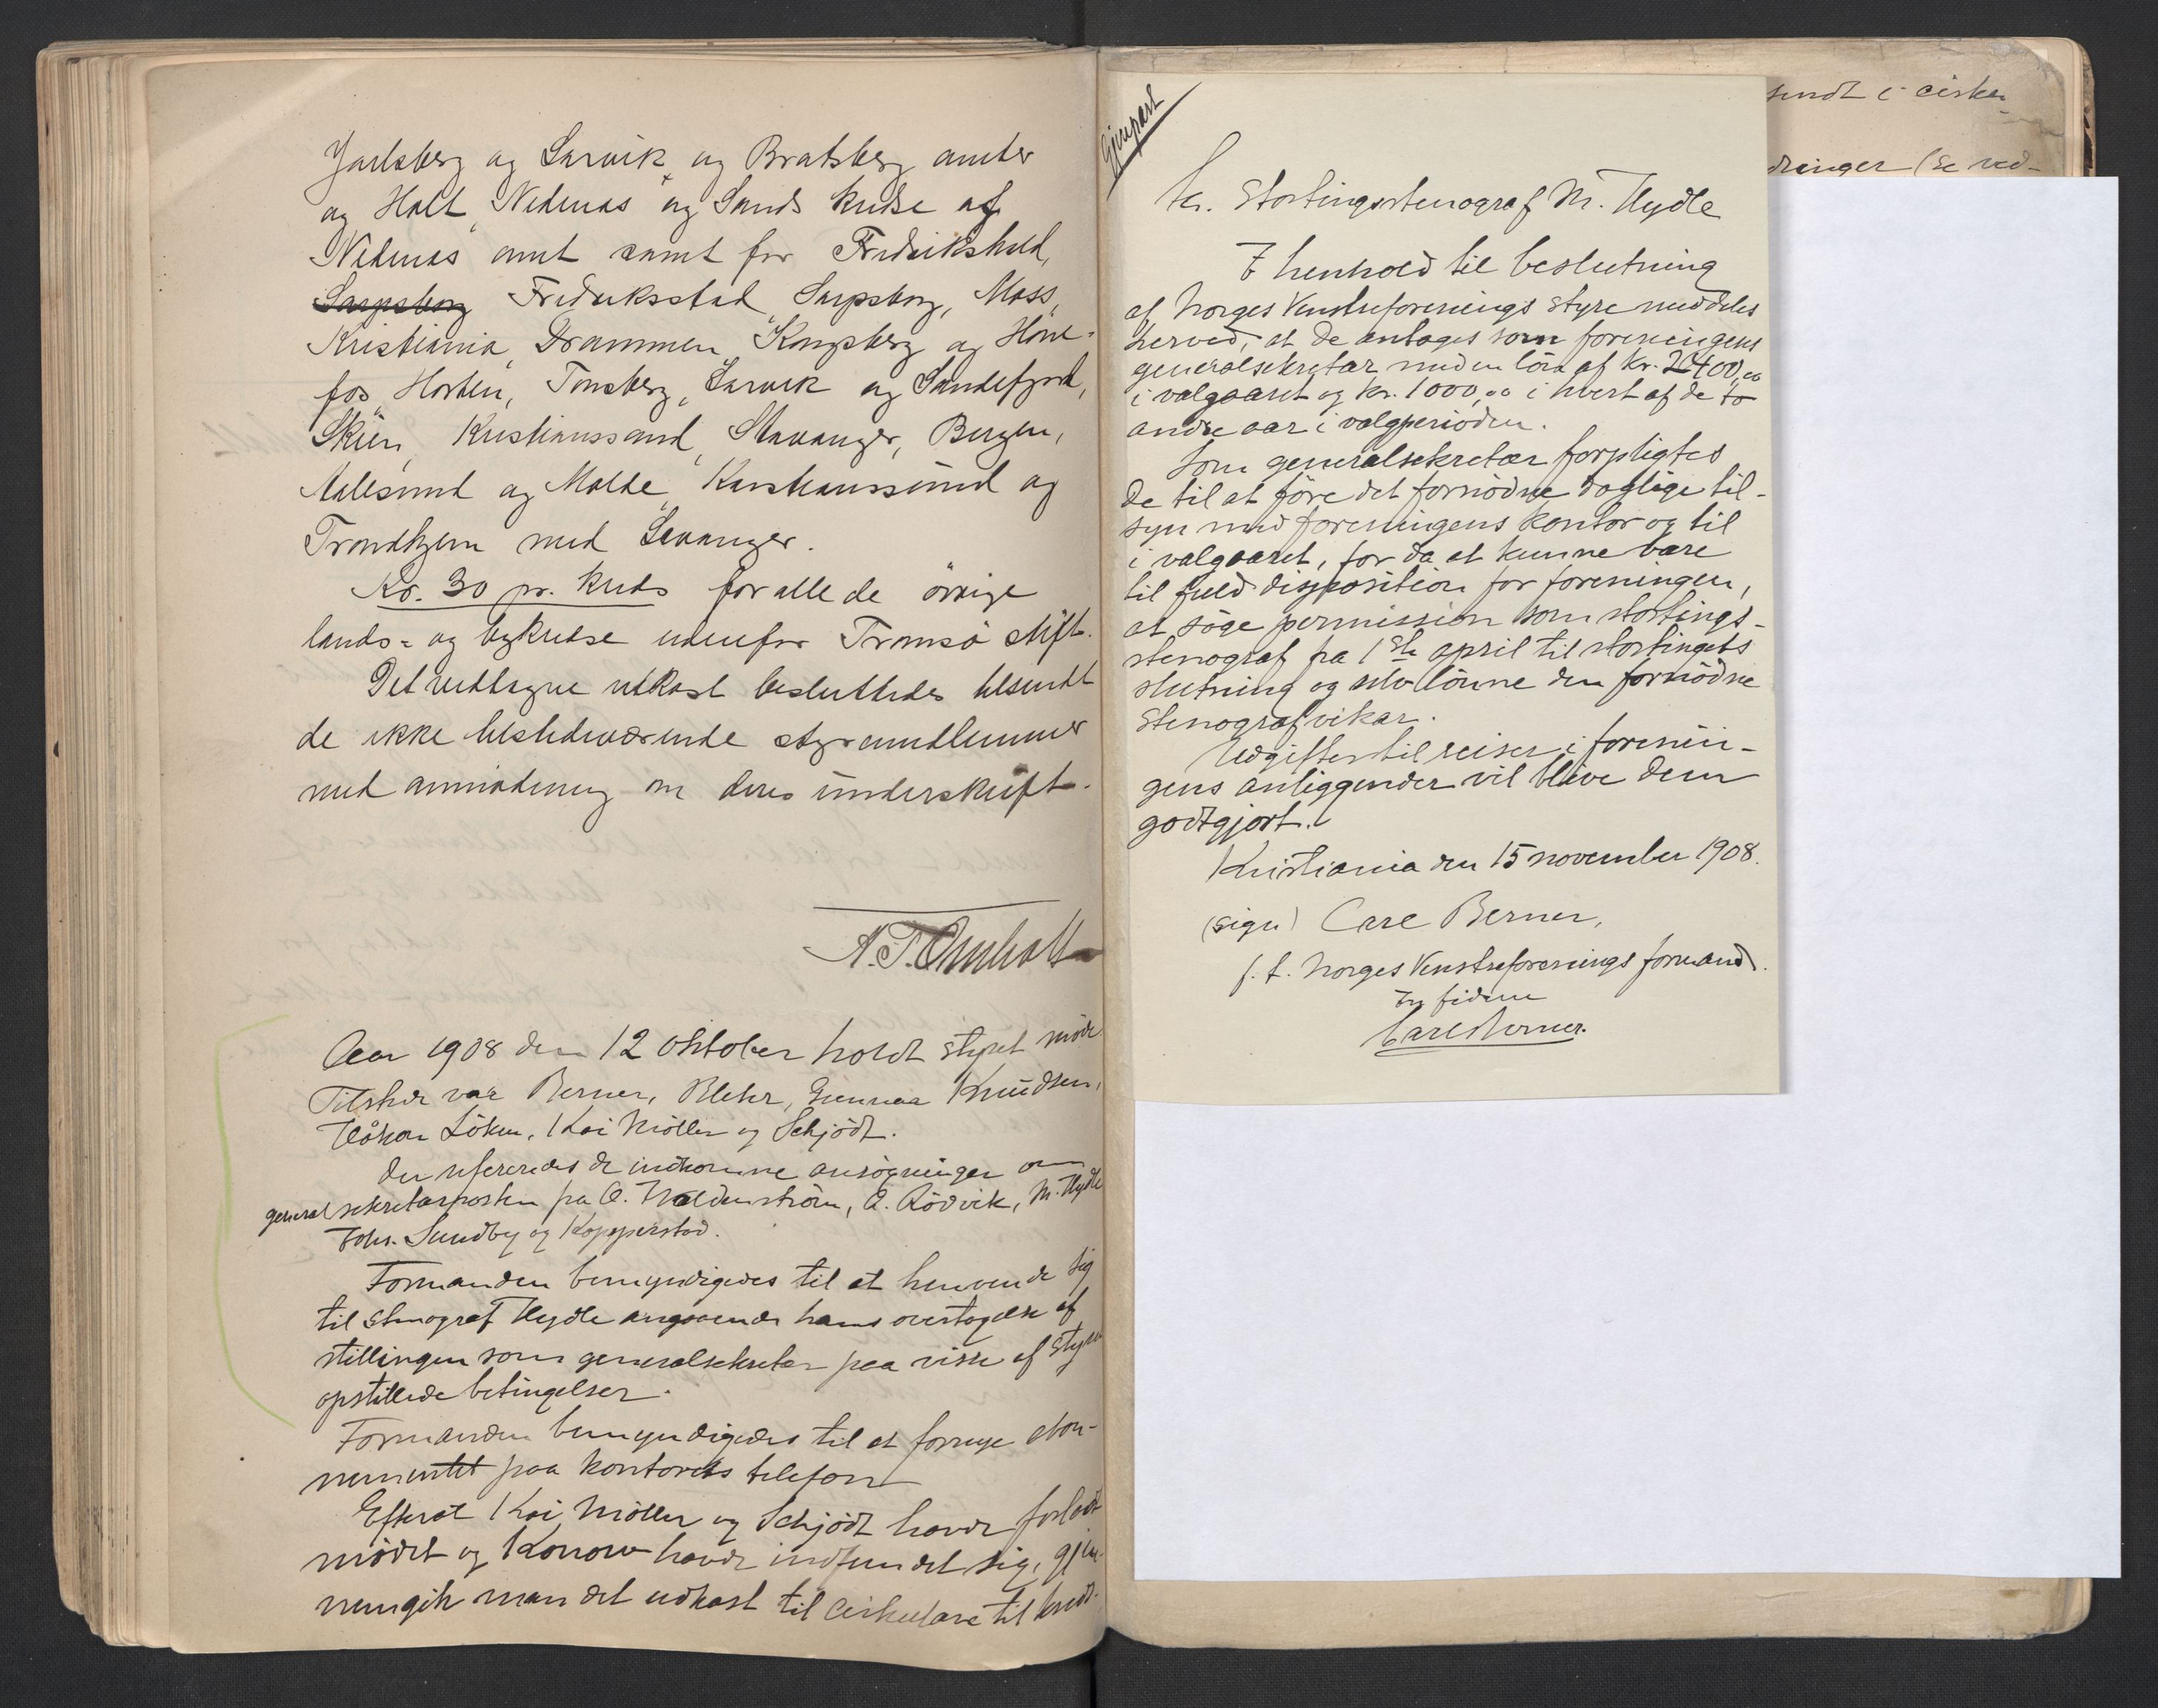 Jarlsberg og Larvik og Bratsberg amter
og Holt, Nedenæs og Sands kredse af
Nedenæs amt samt for Fredrikshald,
Sarpsborg Fredriksstad, Sarpsborg, Moss,
Kristiania, Drammen, Kongsberg og Höne-
fos, Horten, Tönsberg, Larvik og Sandefjord,
Skien, Kristianssand, Stavanger, Bergen,
Aalesund og Molde, Kristianssund og
Trondhjem med Levanger.
Kr. 30 pr. kreds for alle de övrige
lands- og bykredse udenfor Tromsö stift.
Det vedtagne utkast besluttedes tilsendt
de ikke tilstedeværende styremedlemmer
med anmodning om deres underskrift.
A. T. Omholt
Aar 1908 den 12 oktober holdt styret möde
Tilstede var Berner, Blehr, Gunnar Knudsen,
Håkon Löken, Kai Möller og Schjödt.
Der refereredes de indkomne ansögninger om
generalsekretærposten fra O. Waldenström, A. Rödvik, M. Hydle
Johs. Sundby og Kopperstad.
Formanden bemyndigedes til at henvende sig
til stenograf Hydle angaaende hans overtagelse af
stillingen som generalsekretær paa visse af styret
opstillede betingelser.
Formanden bemyndigedes til at fornye abon-
nementet paa kontorets telefon
Efterat Kai Möller og Schjödt havde forladt
mödet og Konow havde indfundet sig, gjen-
nemgik man det udkast til cirkulære til kreds-
Gjenpart
Hr. Stortingsstenograf M. Hydle
I henhold til beslutning
af Norges Venstreforenings styre meddeles
herved, at De antages som foreningens
generalsekretær med en lön af kr. 2400,00
i valgaaret og kr. 1000,00 i hvert af de to
andre aar i valgperioden.
Som generalsekretær forpligtes
De til at före det fornödne daglige til-
syn med foreningens kontor og til
i valgaaret, for da at kunne være
til fuld disposition for foreningen,
at söge permission som stortings-
stenograf fra 1ste april til stortingets
slutning og selv lönne den fornödne
stenografvikar.
Udgifter til reiser i forenin-
gens anliggender vil blive Dem
godtgjort.
Kristiania den 15 november 1908.
(sign) Carl Berner,
f. t. Norges Venstreforenings formand.
In fidem
Carl Berner.
sendt i cirku-
dringer (se ved-